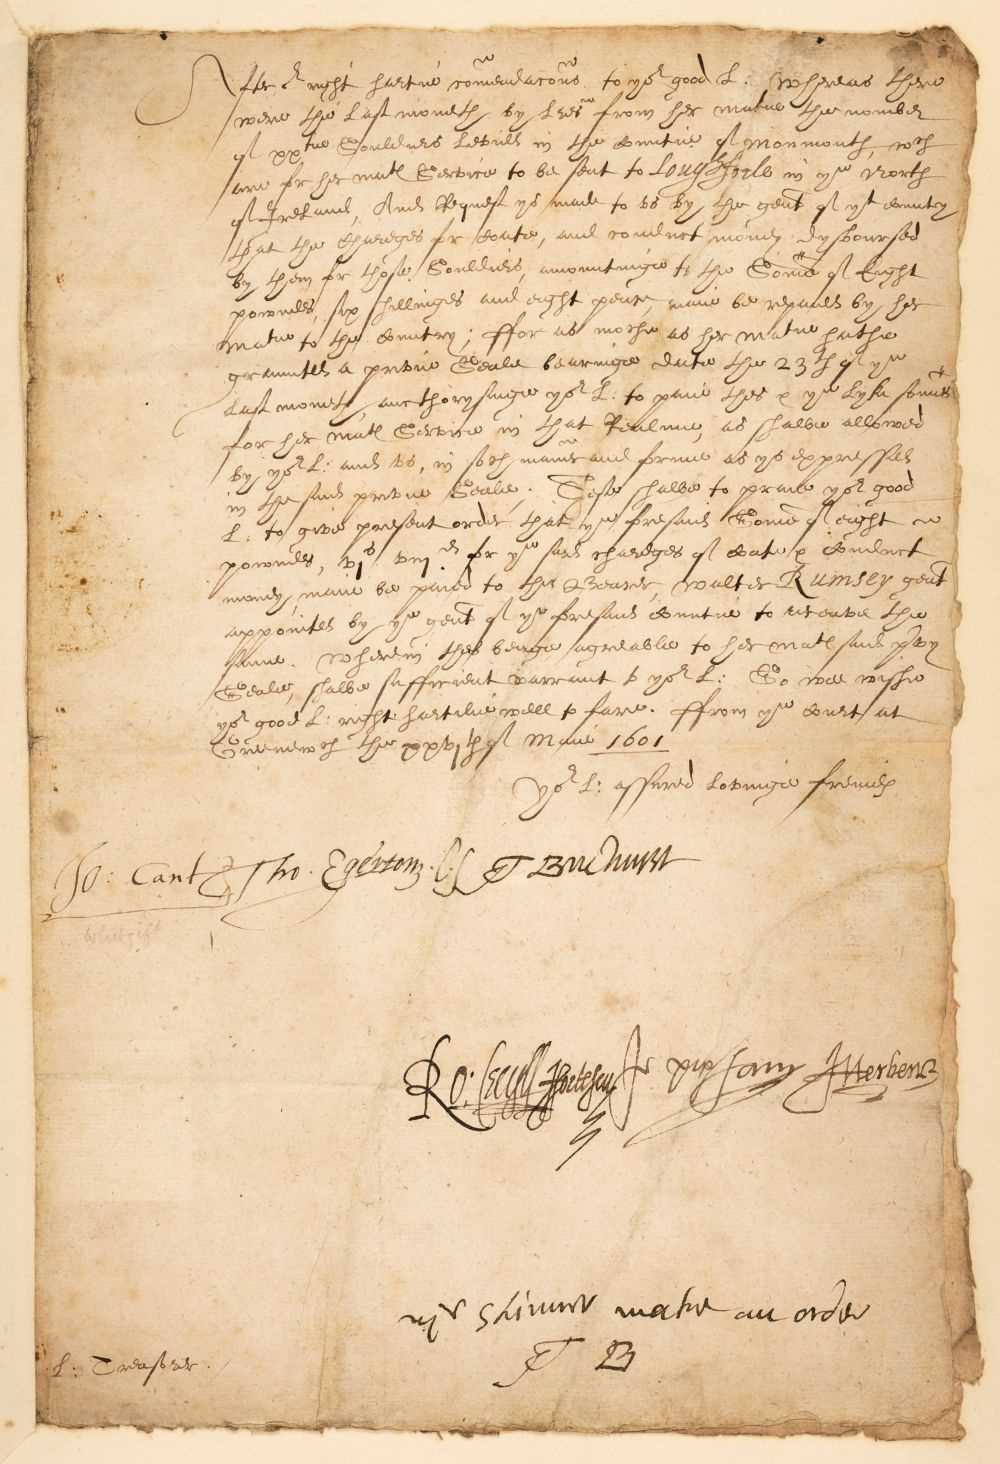 After or right hartie comendacons to yor good L: Whereas there
were the last moneth by lres from her Matie the nomber
of xxtie Souldiers levied in the Countie of Monmouth, wch
are for her Mats Service to be sent to Lough foile in ye North
of Ireland, And Request ys made to vs by the gent of yt Countrey
that the chardges for Coate, and conduct money dysboursed
by them for those Souldiers, amountinge to the Some of Eight
powndes, six shillinges and eight pence, maie be repaied by her
Matie to the Countrey; ffor as moche as her Matie hathe
graunted a privie Seale bearinge date the 23th of ye
last moneth, aucthorysinge yor L: to paie thes & ye lyke somes
for her Mats Service in that Realme, as shalbe allowed
by yor L: and vs, in soch maner and forme as ys expressed
in the said privie Seale; These shalbe to praie yor good
L: to give present order, that ye foresaid Some of eight
powndes, vjs viijd for ye said chardges of Coate & Conduct
money, maie be paied to the Bearer, Walter Rumsey gent
appointed by ye gent of ye foresaid Countie to receave the
same. Wherein thes beinge agreable to her Mats said privy
Seale, shalbe sufficient warrant to yor L: So wee wishe
yor good L: right hartelie well to fare. ffrom ye Court at
Grenewch the xxvjth of Maie 1601
Yor L: assured lovinge frendes
Jo: Cantuar Tho. Egerton. C.S. T Buckhurst
whitgift
Ro: Cecyll J fortescu Jo popham J Herbert
mr Skinner make an order
T B
L: Treasorer.